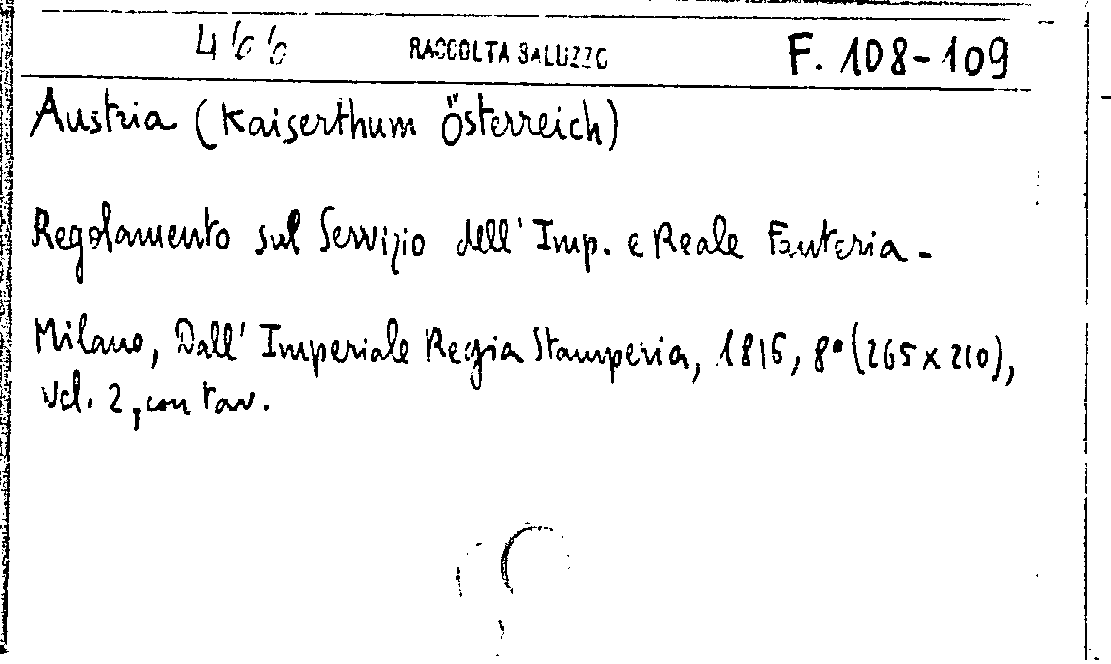 466 RACCOLTA SALUZZO F. 108-109
Austria (Kaiserthum Österreich)
Regolamento sul Servizio dell' Imp. e Reale Fanteria -
Milano, Dall' Imperiale Regia Stamperia, 1816, 8° (265 x 210),
Vol. 2, con tav.